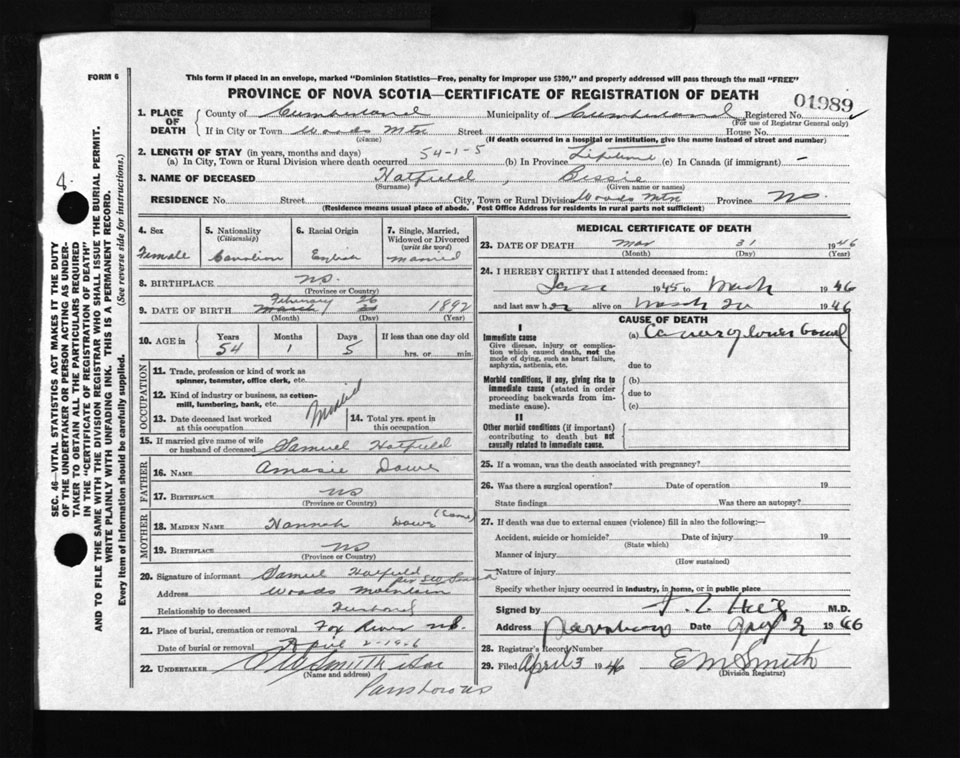 FORM 6
This form if placed in an envelope, marked "Dominion Statistics—Free, penalty for improper use $300," and properly addressed will pass through the mail "FREE"
PROVINCE OF NOVA SCOTIA—CERTIFICATE OF REGISTRATION OF DEATH
01989
1. PLACE OF DEATH County of Cumberland Municipality of Cumberland Registered No.
(For use of Registrar General only)
If in City or Town Woods Mtn Street House No.
(Name) (If death occurred in a hospital or institution, give the name instead of street and number)
2. LENGTH OF STAY (in years, months and days)
(a) In City, Town or Rural Division where death occurred 54-1-5 (b) In Province Lifetime (c) In Canada (if immigrant) -
3. NAME OF DECEASED Hatfield, Bessie
(Surname) (Given name or names)
RESIDENCE No. Street City, Town or Rural Division Woods Mtn Province NS
(Residence means usual place of abode. Post Office Address for residents in rural parts not sufficient)
4. Sex 5. Nationality 6. Racial Origin 7. Single, Married, Widowed or Divorced
(Citizenship) (write the word)
Female Canadian English Married
8. BIRTHPLACE NS.
(Province or Country)
February 26
9. DATE OF BIRTH March 1892
(Month) (Day) (Year)
10. AGE in Years Months Days If less than one day old
54 1 5 hrs. or min.
OCCUPATION
11. Trade, profession or kind of work as spinner, teamster, office clerk, etc.
12. Kind of industry or business, as cotton-mill, lumbering, bank, etc.
Married
13. Date deceased last worked at this occupation 14. Total yrs. spent in this occupation
15. If married give name of wife or husband of deceased Samuel Hatfield
FATHER
16. NAME Amasie Dowe
17. BIRTHPLACE NS
(Province or Country)
MOTHER
18. MAIDEN NAME Hannah
19. BIRTHPLACE NS
(Province or Country)
20. Signature of informant Samuel Hatfield
Address Woods Mountain
Relationship to deceased Husband
21. Place of burial, cremation or removal Fox River NS.
Date of burial or removal April 2-1946
22. UNDERTAKER Smith
(Name and address)
Parrsboro NS
MEDICAL CERTIFICATE OF DEATH
23. DATE OF DEATH Mar 31 1946
(Month) (Day) (Year)
24. I HEREBY CERTIFY that I attended deceased from:
Jan 1945 to March 1946
and last saw her alive on March 1946
CAUSE OF DEATH
I
Immediate cause (a) Cancer of lower bowel
Give disease, injury or complication which caused death, not the mode of dying, such as heart failure, asphyxia, asthenia, etc.
due to
Morbid conditions, if any, giving rise to immediate cause (stated in order proceeding backwards from immediate cause). (b)
due to
(c)
II
Other morbid conditions (if important) contributing to death but not causally related to immediate cause.
25. If a woman, was the death associated with pregnancy?
26. Was there a surgical operation? Date of operation 19
State findings Was there an autopsy?
27. If death was due to external causes (violence) fill in also the following:—
Accident, suicide or homicide? Date of injury 19
(State which)
Manner of injury
(How sustained)
Nature of injury
Specify whether injury occurred in industry, in home, or in public place
Signed by M.D.
Address Parrsboro Date Apr 2 1946
28. Registrar's Record Number
29. Filed April 3 1946 E M Smith
(Division Registrar)
SEC. 46—VITAL STATISTICS ACT MAKES IT THE DUTY
OF THE UNDERTAKER OR PERSON ACTING AS UNDER-
TAKER TO OBTAIN ALL THE PARTICULARS REQUIRED
IN THE "CERTIFICATE OF REGISTRATION OF DEATH"
AND TO FILE THE SAME WITH THE DIVISION REGISTRAR WHO SHALL ISSUE THE BURIAL PERMIT.
WRITE PLAINLY WITH UNFADING INK. THIS IS A PERMANENT RECORD.
Every item of information should be carefully supplied. (See reverse side for instructions.)